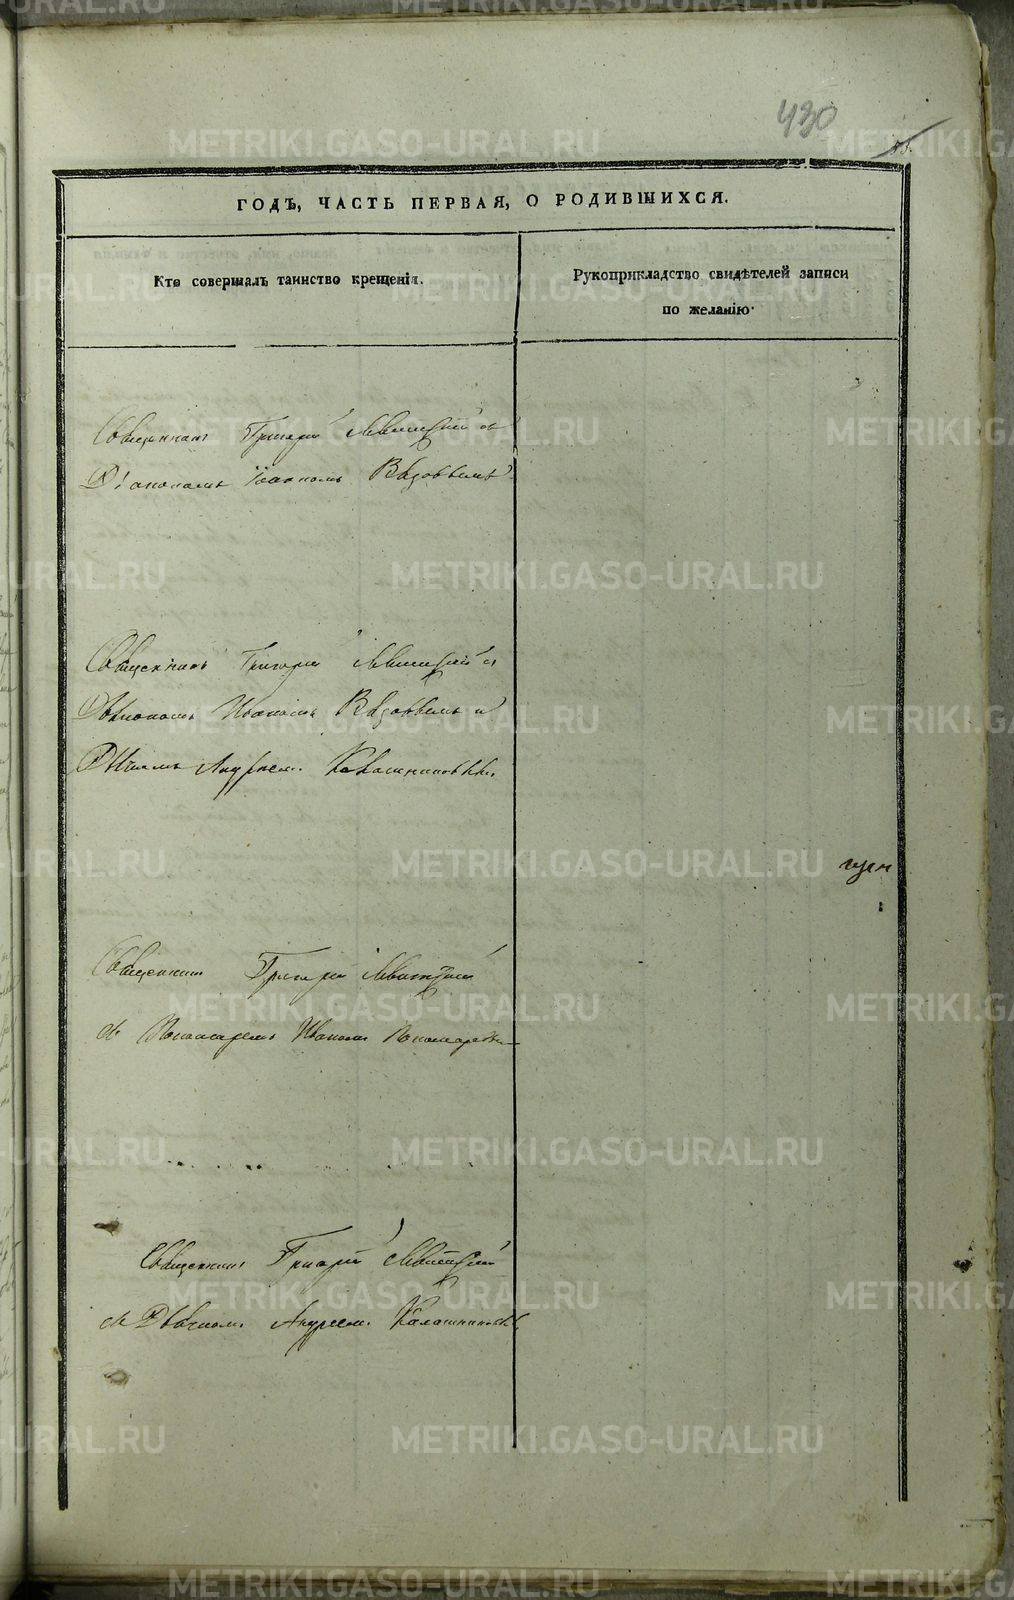 430
ГОДЪ, ЧАСТЬ ПЕРВАЯ, О РОДИВШИХСЯ.
Кто совершалъ таинство крещенія.
Рукоприкладство свидѣтелей записи
по желанію.
Священникъ Григорій Левитскій съ
Діакономъ Іоанномъ
Священникъ Григорій Левитскій съ
Діакономъ Іоанномъ и
Дьячкомъ Андреем Калашниковым
Священникъ Григорій Левитскій
съ Пономаремъ Иваномъ Пономаревым
Священникъ Григорій Левитскій
съ Дьячком Андреем Калашниковым
METRIKI.GASO-URAL.RU